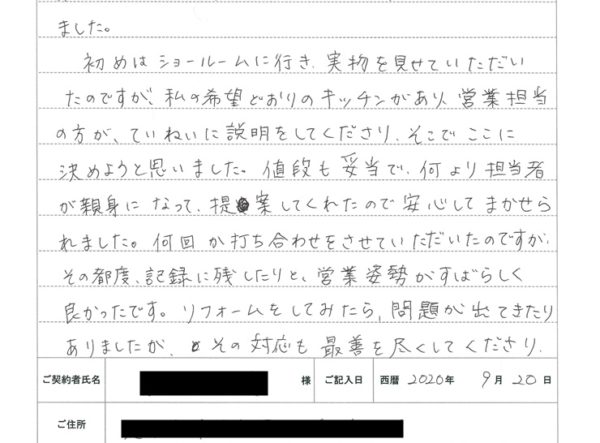 ました。
初めはショールームに行き、実物を見せていただい
たのですが、私の希望どおりのキッチンがあり、営業担当
の方が、ていねいに説明をしてくださり、そこでここに
決めようと思いました。値段も妥当で、何より担当者
が親身になって、提案してくれたので安心してまかせら
れました。何回か打ち合わせをさせていただいたのですが、
その都度、記録に残したりと、営業姿勢がすばらしく
良かったです。リフォームをしてみたら、問題が出てきたり
ありましたが、その対応も最善を尽くしてくださり、
ご契約者氏名 様 ご記入日 西暦 2020年 9月 20日
ご住所